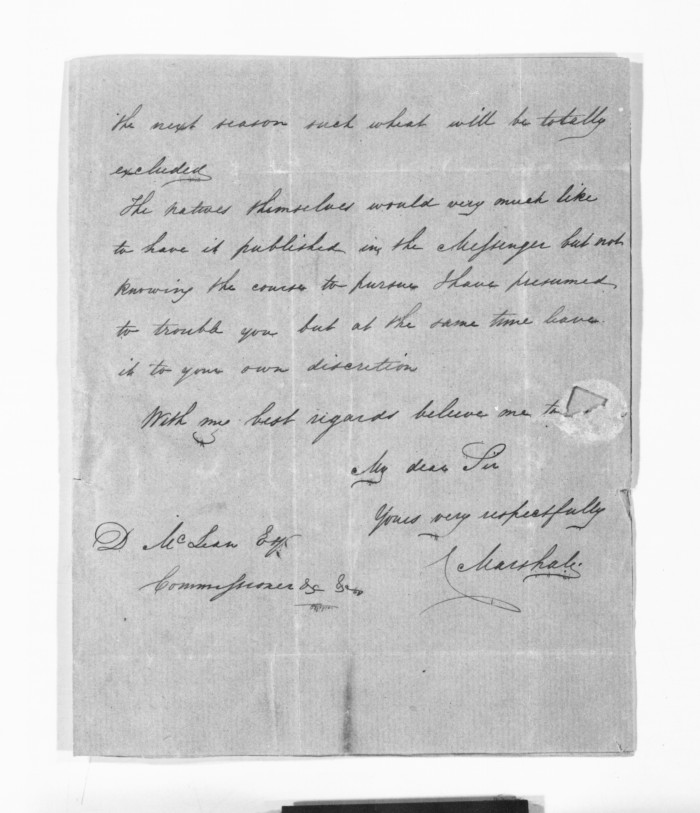 the next season such wheat will be totally
excluded
The natives themselves would very much like
to have it published in the Messenger but not
knowing the course to pursue I have presumed
to trouble you but at the same time leave
it to your own discretion
With my best regards believe me to
My dear Sir
Yours very respectfully
Marshall
D McLean Esq
Commissioner &c &c